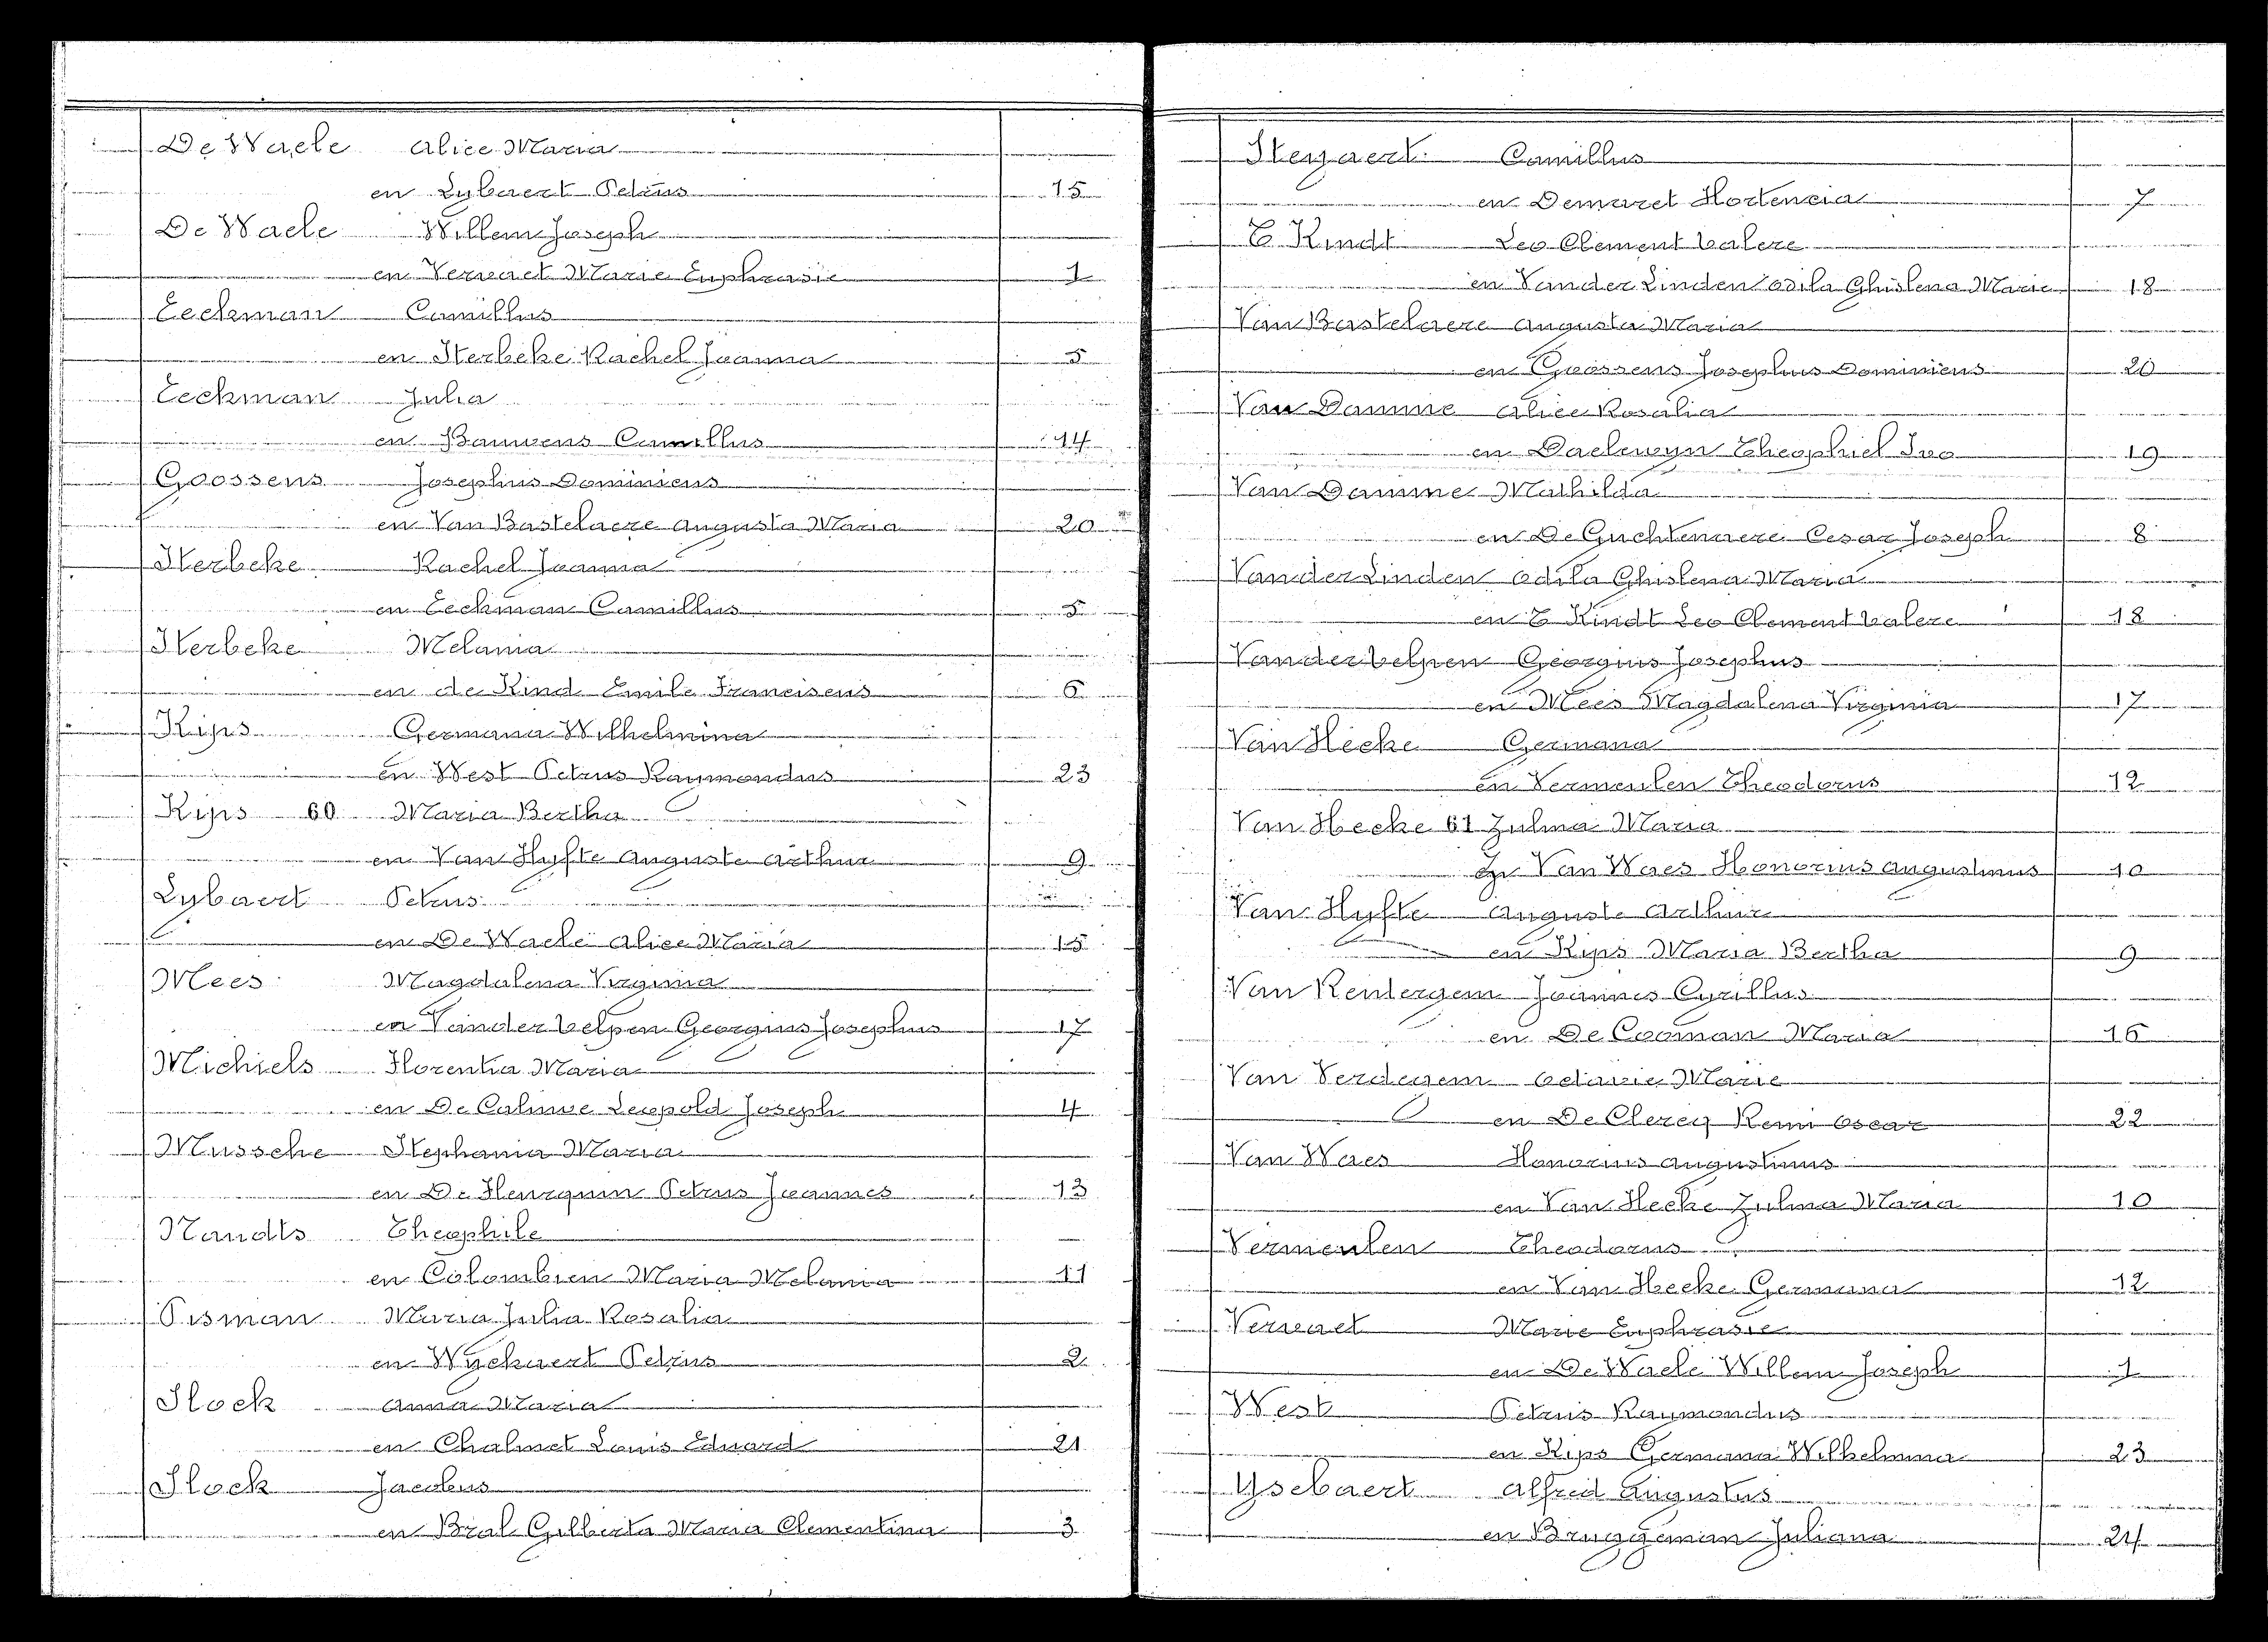 De Waele Alice Maria
en Lybaert Petrus 15
De Waele Willem Joseph
en Vervaet Marie Euphrasie 1
Eeckman Camillus
en Sterbeke Rachel Joanna 5
Eeckman Julia
en Bauwens Camillus 14
Goossens Josephus Dominicus
en Van Bastelaere Augusta Maria 20
Sterbeke Rachel Joanna
en Eeckman Camillus 5
Sterbeke Melania
en de Kind Emile Franciscus 6
Kips Germana Wilhelmina
en West Petrus Raymondus 23
Kips 60 Maria Bertha
en Van Hyfte Auguste Arthur 9
Lybaert Petrus
en De Waele Alice Maria 15
Mees Magdalena Virginia
en Vander Velpen Georgius Josephus 17
Michiels Florentia Maria
en De Caluwe Leopold Joseph 4
Mussche Stephania Maria
en De Petrus Joannes 13
Standts Theophile
en Colombien Maria Melania 11
Pisman Maria Julia Rosalia
en Wyckaert Petrus 2
Slock Anna Maria
en Chalmet Louis Eduard 21
Slock Jacobus
en Bral Gilberta Maria Clementina 3
Steyaert Camillus
en Demaret Hortencia 7
T Kindt Leo Clement Valere
en Vander Linden Odila Ghislena Marie 18
Van Bastelaere Augusta Maria
en Goossens Josephus Dominicus 20
Van Damme Alice Rosalia
en Daelwyn Theophiel Ivo 19
Van Damme Mathilda
en De Guchtenaere Cesar Joseph 8
Vander Linden Odila Ghislena Maria
en T Kindt Leo Clement Valere 18
Vander Velpen Georgius Josephus
en Mees Magdalena Virginia 17
Van Hecke Germana
en Vermeulen Theodorus 12
Van Hecke 61 Zulma Maria
En Van Waes Honorius Augustinus 10
Van Hyfte Auguste Arthur
en Kips Maria Bertha 9
Van Renterghem Joannes Cyrillus
en De Cooman Maria 16
Van Verdegem Octavie Marie
en De Clercq Remi Oscar 22
Van Waes Honorius Augustinus
en Van Hecke Zulma Maria 10
Vermeulen Theodorus
en Van Hecke Germana 12
Vervaet Marie Euphrasie
en De Waele Willem Joseph 1
West Petrus Raymondus
en Kips Germana Wilhelmina 23
Ysebaert Alfred Augustus
en Bruggeman Juliana 24